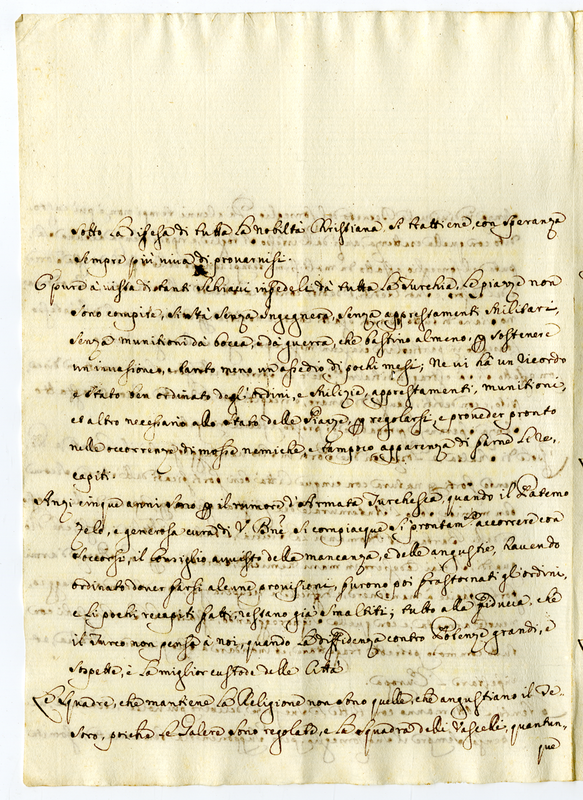 sotto la difesa di tutta la nobiltà Christiana si trattiene, con speranza
sempre più viva di provarnisi.
Epure à vista di tanti schiavi infedeli, dà tutta la Turchia, le piazze non
sono compite, si stà senza Ingegnere, senza apprestamenti Militari,
senza munitioni dà bocca, e dà guerra, che bastino almeno, per sostenere
un'invasione, e tanto meno, un assedio di pochi mesi; Ne vi hà un Ricordo
e stato ben ordinato degl'ordini, e Milizie, apprestamenti, munitioni,
et altro necessario allo stato delle Piazze per regolarsi, e proveder pronto
nelle occorrenze di mosse nemiche, e tampoco apparenza di farne li re-
capiti.
Anzi cinque anni sono per il rumore d'Armata Turchesca, quando il Paterno
Zelo, e generosa cura di V. si compiacque si prontam.te accorrere con
soccorsi, il Conseglio avvisto delle mancanze, e delle angustie, havendo
ordinato dover farsi alcune provisioni, furono poi frastornati gl'ordini,
e li pochi recapiti fatti, restano già smaltiti; tutto alla fiducia, che
il Turco non pensa à noi, quando la diffidenza contro Potenze grandi, e
sospette, è la miglior custode delle Città
Le Squadre, che mantiene la Religione non sono quelle, che angustiano il Te-
soro, poiche le Galere sono regolate, e la squadra delli Vascelli, quantun-
que